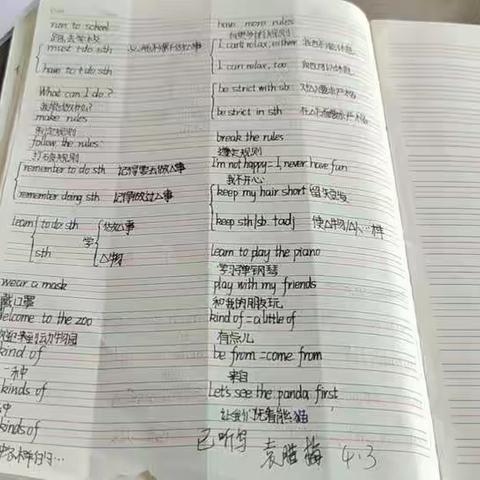 run to school
跑去学校
must + do sth
have to + do sth
What can I do?
make rules
制定规则
follow the rules
remember to do sth 记得要去做△事
remember doing sth 记得做过△事
learn to do sth 学 做△事
sth △物
wear a mask
戴口罩
elcome to the zoo
kind of
一种
kinds of
kinds of
have more rules
I can't relax, either
I can relax, too
be strict with sb.
be strict in sth
break the rules
I'm not happy = I never have fun
我不开心
keep my hair short 留短发
keep sth/sb. + adj
learn to play the piano
学习弹钢琴
play with my friends
和我的朋友玩
kind of = a little of
有点儿
be from = come from
来自
Let's see the panda first
让我们先看熊猫
已听写 袁腊梅 4.3